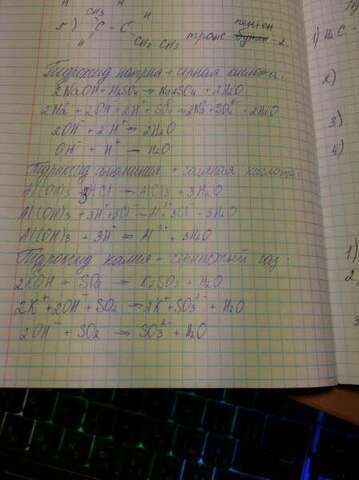 H H
CH3
5) C - C
H CH2 CH3 транс пентен -2.
Гидроксид натрия + серная кислота.
2NaOH + H2SO4 → Na2SO4 + 2H2O
2Na⁺ + 2OH⁻ + 2H⁺ + SO4²⁻ → 2Na⁺ + SO4²⁻ + 2H2O
2OH⁻ + 2H⁺ → 2H2O
OH⁻ + H⁺ → H2O
Гидроксид алюминия + соляная кислота.
Al(OH)3 + 3HCl → AlCl3 + 3H2O
Al(OH)3 + 3H⁺ + 3Cl⁻ → Al³⁺ + 3Cl⁻ + 3H2O
Al(OH)3 + 3H⁺ → Al³⁺ + 3H2O
Гидроксид калия + сернистый газ.
2KOH + SO2 → K2SO3 + H2O
2K⁺ + 2OH⁻ + SO2 → 2K⁺ + SO3²⁻ + H2O
2OH⁻ + SO2 → SO3²⁻ + H2O
1) H3C -
2)
3)
4)
1)
2